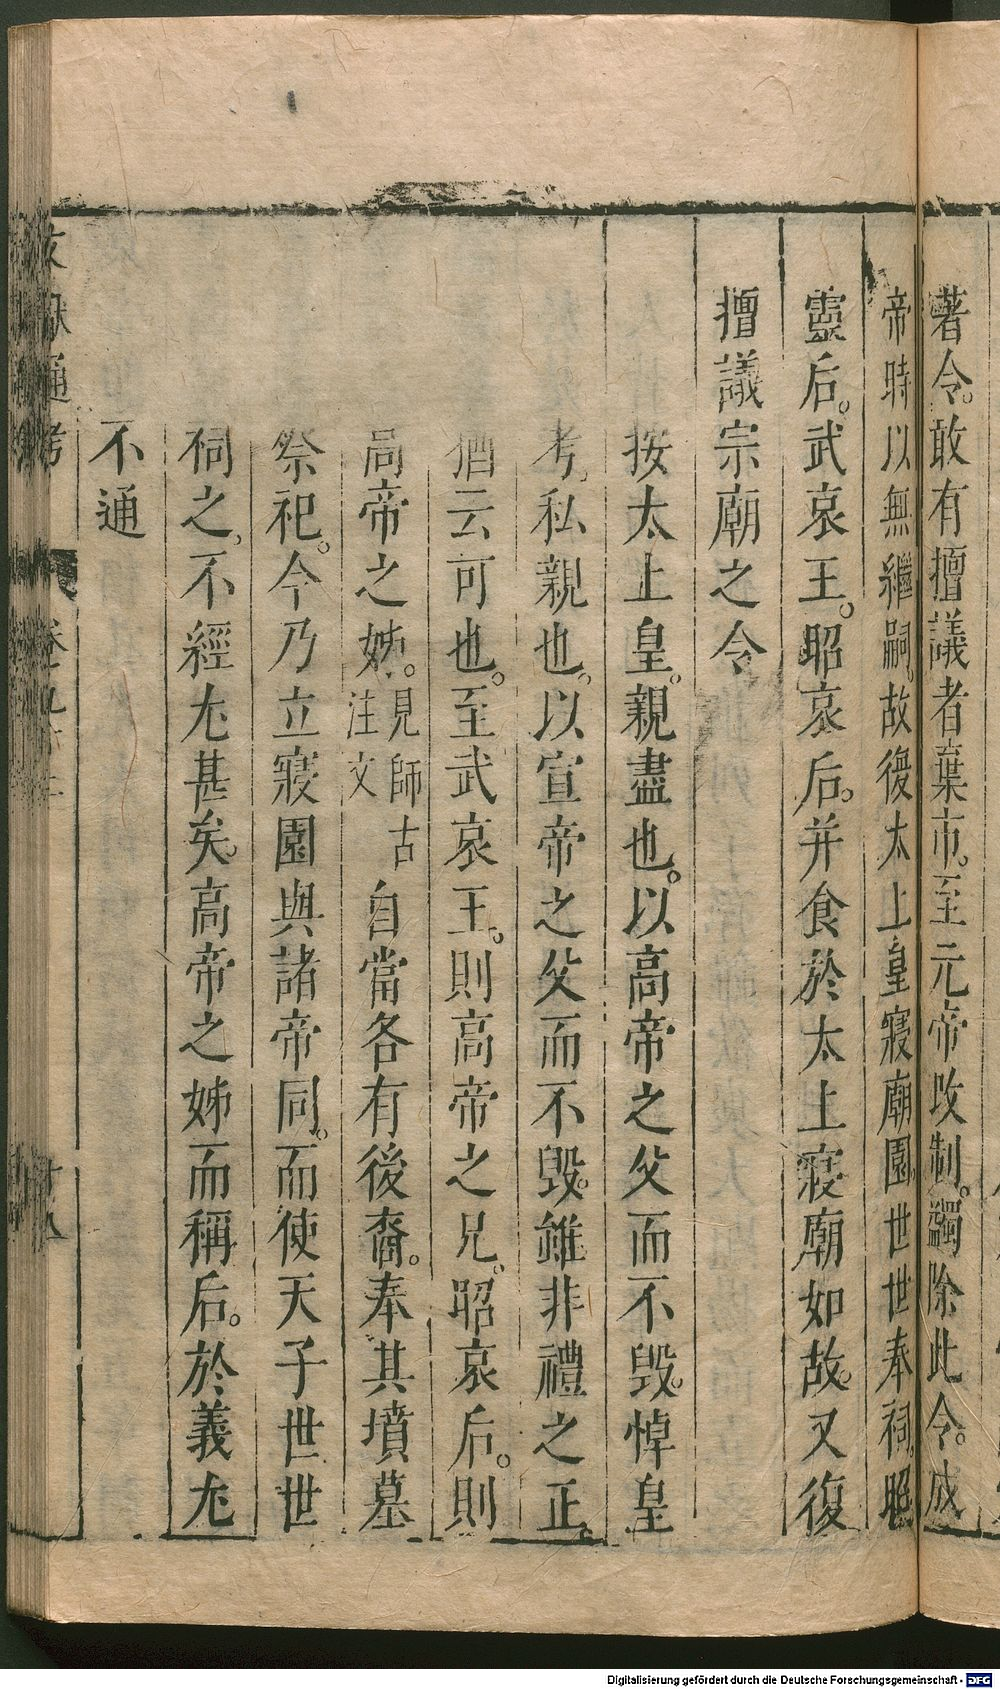 著令。敢有擅議者棄市。至元帝改制。蠲除此令。成
帝時以無繼嗣。故復太上皇寢廟園世世奉祠。昭
靈后。武哀王。昭哀后。并食於太上寢廟如故。又復
擅議宗廟之令
按太上皇。親盡也。以高帝之父而不毁。悼皇
考。私親也。以宣帝之父而不毁。雖非禮之正。
猶云可也。至武哀王。則高帝之兄。昭哀后。則
高帝之姊。見師古注文自當各有後裔。奉其墳墓
祭祀。今乃立寢園與諸帝同。而使天子世世
祠之。不經尤甚矣。高帝之姊而稱后。於義尤
不通
文獻通考 卷九十二
Digitalisierung gefördert durch die Deutsche Forschungsgemeinschaft - DFG